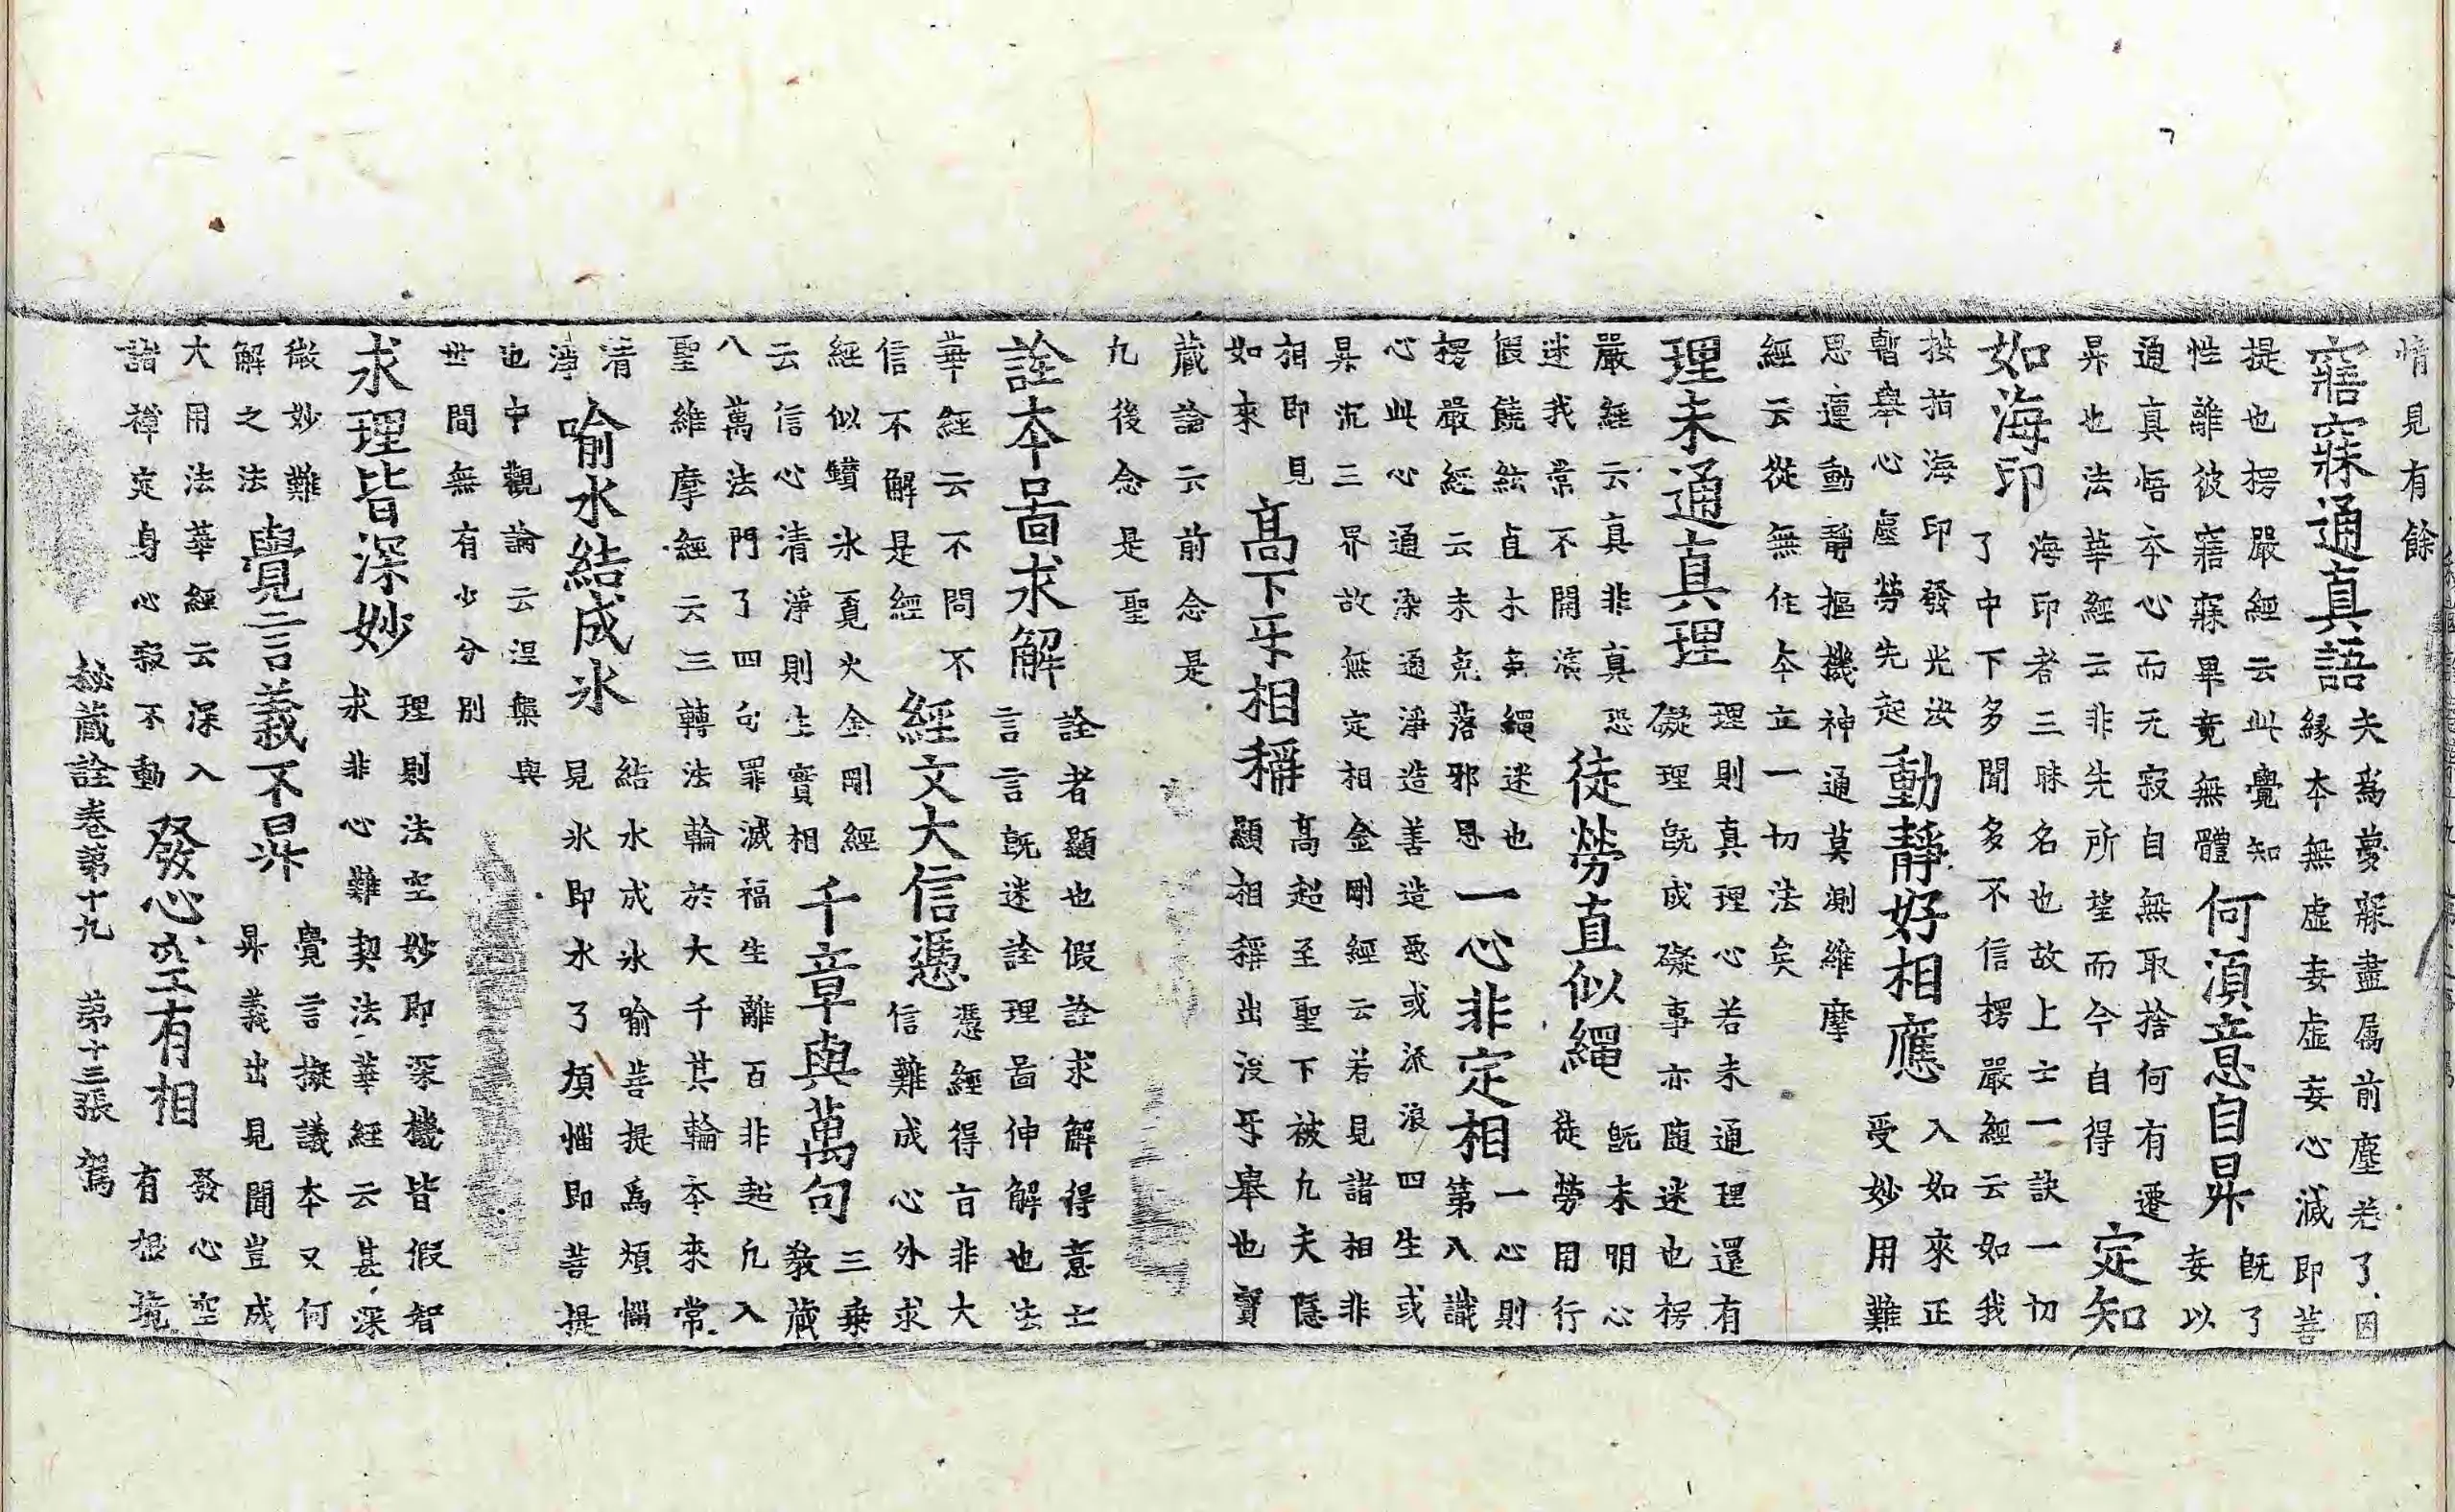 情見有餘
寤寐通真語
夫爲夢寐盡属前塵若了因
緣本無虛妄虛妄心滅即菩
提也楞嚴經云此覺知
性離彼寤寐畢竟無體
何湏意自昇
既了
妄以
通真悟本心而无寂自無取捨何有遷
昇也法華經云非先所望而今自得
定知
如海印
海印者三昧名也故上士一訣一切
了中下多聞多不信楞嚴經云如我
按指海印發光汝
暫舉心塵勞先起
動靜好相應
入如來正
受妙用難
思運動靜摳機神通莫測維摩
經云從無住夲立一切法矣
理未通真理
理則真理心若未通理還有
礙理既成礙事亦随迷也楞
嚴經云真非真恐
迷我常不開演
徒勞直似繩
既未明心
徒勞用行
假饒絃直木夲繩迷也
楞嚴經云未克落邪思
一心非定相
一心則
第八識
心此心通染通淨造善造惡或派浪四生或
昇沉三界故無定相金剛經云若見諸相非
相即見
如來
髙下㸦相稱
髙超至聖下被九夫隱
顯相相稱出没㸦舉也寳
藏論云前念是
九後念是聖
詮夲啚求解
詮者顯也假詮求解得意亡
言言既迷詮理啚伸解也法
華經云不問不
信不解是經
經文大信憑
憑經得㫖非大
信難成心外求
經似鑚氷覔火金剛經
云信心清淨則生實相
千章與萬句
三乗
教藏
八萬法門了四句罪滅福生離百非起凡入
聖維摩經云三轉法輪於大千其輪夲來常
清
淨
喻水結成氷
結水成氷喻菩提爲煩惱
見氷即水了煩惱即菩提
也中觀論云涅槃與
世間無有少分別
求理皆深妙
理則法空妙即深機皆假智
求非心難契法華經云甚深
微妙難
解之法
覺言義不昇
覺言擬議夲又何
昇義出見聞豈成
大用法華經云深入
諸禪定身心寂不動
發心空有相
發心空
有相境
秘藏詮卷第十九　第十三張　駕